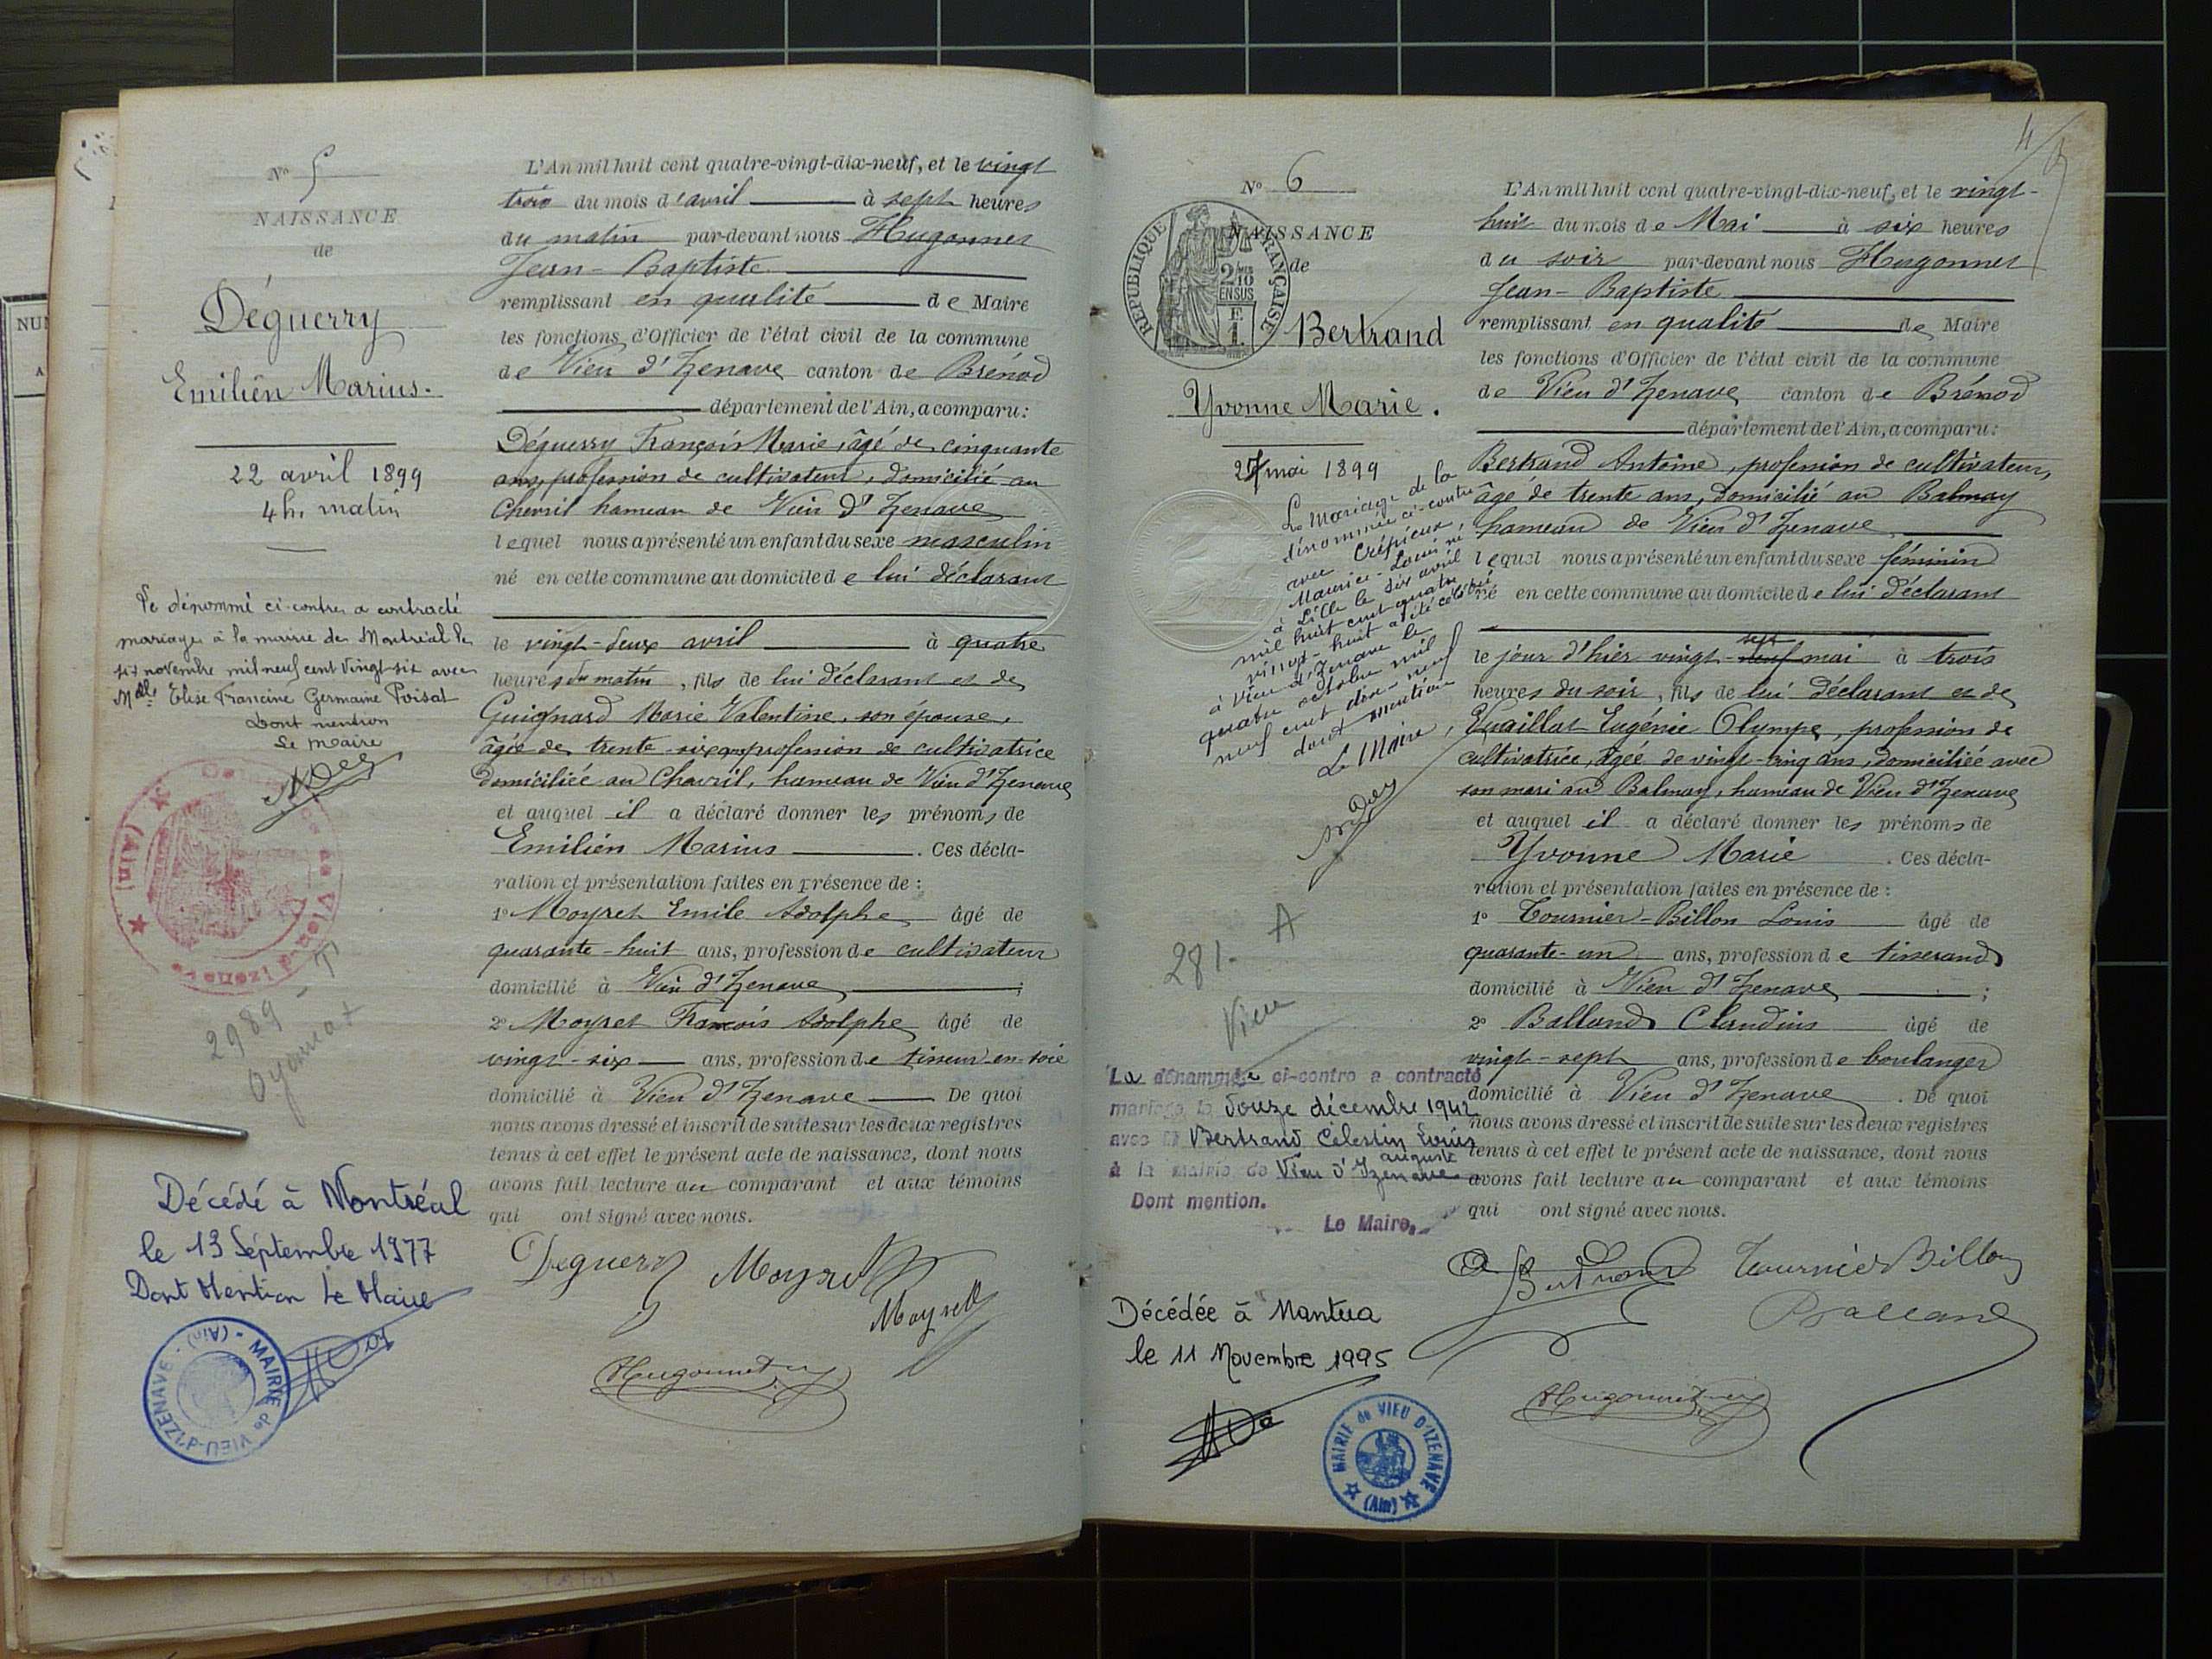 N° 5
NAISSANCE
de
Déguerry
Emilién Marius.
22 avril 1899
4 h. matin
Le dénommé ci-contre a contracté
mariage à la mairie de Montréal le
six novembre mil neuf cent vingt-six avec
Mlle Elise Francine Germaine Poisat
Dont mention
Le Maire
2989 - T
Oyonnax
Décédé à Montréal
le 13 Septembre 1977
Dont Mention Le Maire
MAIRIE de VIEU-d'IZENAVE - (Ain) -
L'An mil huit cent quatre-vingt-dix-neuf, et le vingt
trois du mois d'avril à sept heures
du matin par-devant nous Hugonnet
Jean-Baptiste
remplissant en qualité de Maire
les fonctions d'Officier de l'état civil de la commune
de Vieu d'Izenave canton de Brénod
département de l'Ain, a comparu :
Déguerry François Marie, âgé de cinquante
ans, profession de cultivateur, domicilié au
Chevril hameau de Vieu d'Izenave
lequel nous a présenté un enfant du sexe masculin
né en cette commune au domicile de lui déclarant
le vingt-deux avril à quatre
heures du matin, fils de lui déclarant et de
Guignard Marie Valentine, son épouse,
âgée de trente-six ans profession de cultivatrice
domiciliée au Chevril, hameau de Vieu d'Izenave
et auquel il a déclaré donner les prénoms de
Emilién Marius . Ces décla-
ration et présentation faites en présence de :
1° Moyret Emile Adolphe âgé de
quarante-huit ans, profession de cultivateur
domicilié à Vieu d'Izenave ;
2° Moyret François Adolphe âgé de
vingt-six ans, profession de tisseur en soie
domicilié à Vieu d'Izenave De quoi
nous avons dressé et inscrit de suite sur les deux registres
tenus à cet effet le présent acte de naissance, dont nous
avons fait lecture au comparant et aux témoins
qui ont signé avec nous.
Deguerry Moyret
Moyret
Hugonnet
4
N° 6
NAISSANCE
de
REPUBLIQUE FRANÇAISE
2/10 EN SUS
F. 1.
Bertrand
Yvonne Marie.
27 mai 1899
Le Mariage de la
dénommée ci-contre
avec Crépieux,
Maurice-Louis né
à Lille le six avril
mil huit cent quatre
vingt-huit a été célébré
à Vieu d'Izenave le
quatre octobre mil
neuf cent dix-neuf
dont mention
Le Maire,
281- A
Vieu
La dénommée ci-contre a contracté
mariage le douze décembre 1942
avec M Bertrand Célestin Louis
auguste
à la mairie de Vieu d'Izenave
Dont mention.
Le Maire,
Décédée à Nantua
le 11 Novembre 1995
MAIRIE de VIEU D'IZENAVE (Ain)
L'An mil huit cent quatre-vingt-dix-neuf, et le vingt-
huit du mois de Mai à six heures
du soir par-devant nous Hugonnet
Jean-Baptiste
remplissant en qualité de Maire
les fonctions d'Officier de l'état civil de la commune
de Vieu d'Izenave canton de Brénod
département de l'Ain, a comparu :
Bertrand Antoine, profession de cultivateur,
âgé de trente ans, domicilié au Balmay
hameau de Vieu d'Izenave
lequel nous a présenté un enfant du sexe féminin
né en cette commune au domicile de lui déclarant
sept
le jour d'hier vingt-neuf mai à trois
heures du soir, fils de lui déclarant et de
Vuaillat Eugénie Olympe, profession de
cultivatrice, âgée de vingt-cinq ans, domiciliée avec
son mari au Balmay, hameau de Vieu d'Izenave
et auquel il a déclaré donner les prénoms de
Yvonne Marie . Ces décla-
ration et présentation faites en présence de :
1° Tournier-Billon Louis âgé de
quarante-un ans, profession de tisserand
domicilié à Vieu d'Izenave ;
2° Balland Claudius âgé de
vingt-sept ans, profession de boulanger
domicilié à Vieu d'Izenave . De quoi
nous avons dressé et inscrit de suite sur les deux registres
tenus à cet effet le présent acte de naissance, dont nous
avons fait lecture au comparant et aux témoins
qui ont signé avec nous.
A. Bertrand Tournier Billon
Balland
Hugonnet